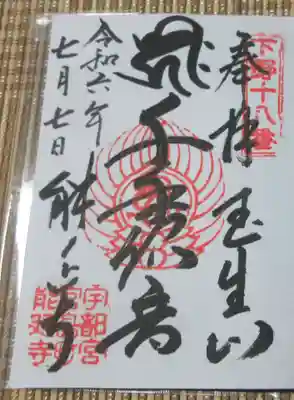 下野十八番
奉拝 玉生山
千手観音
令和六年
七月七日
能延寺
宇都宮
能延寺